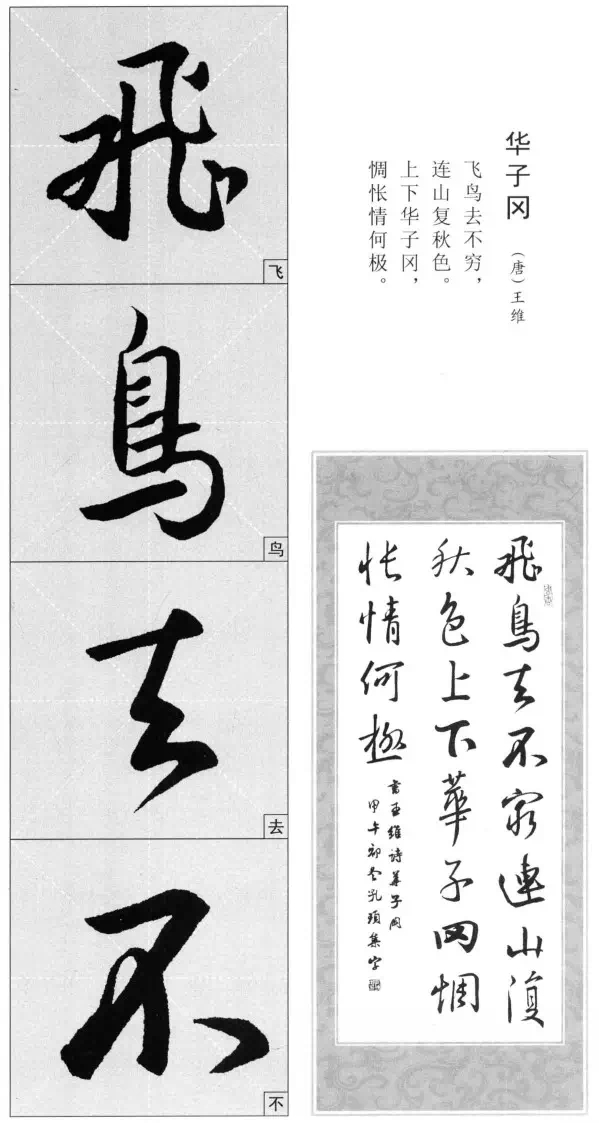 華子冈
(唐)王维
飞鸟去不穷，
连山复秋色。
上下华子冈，
惆怅情何极。
飛
飞
鳥
鸟
去
去
不
不
飛鳥去不窮連山復
秋色上下華子岡惆
悵情何極
書王維诗華子岡
甲午初冬孔頊集字